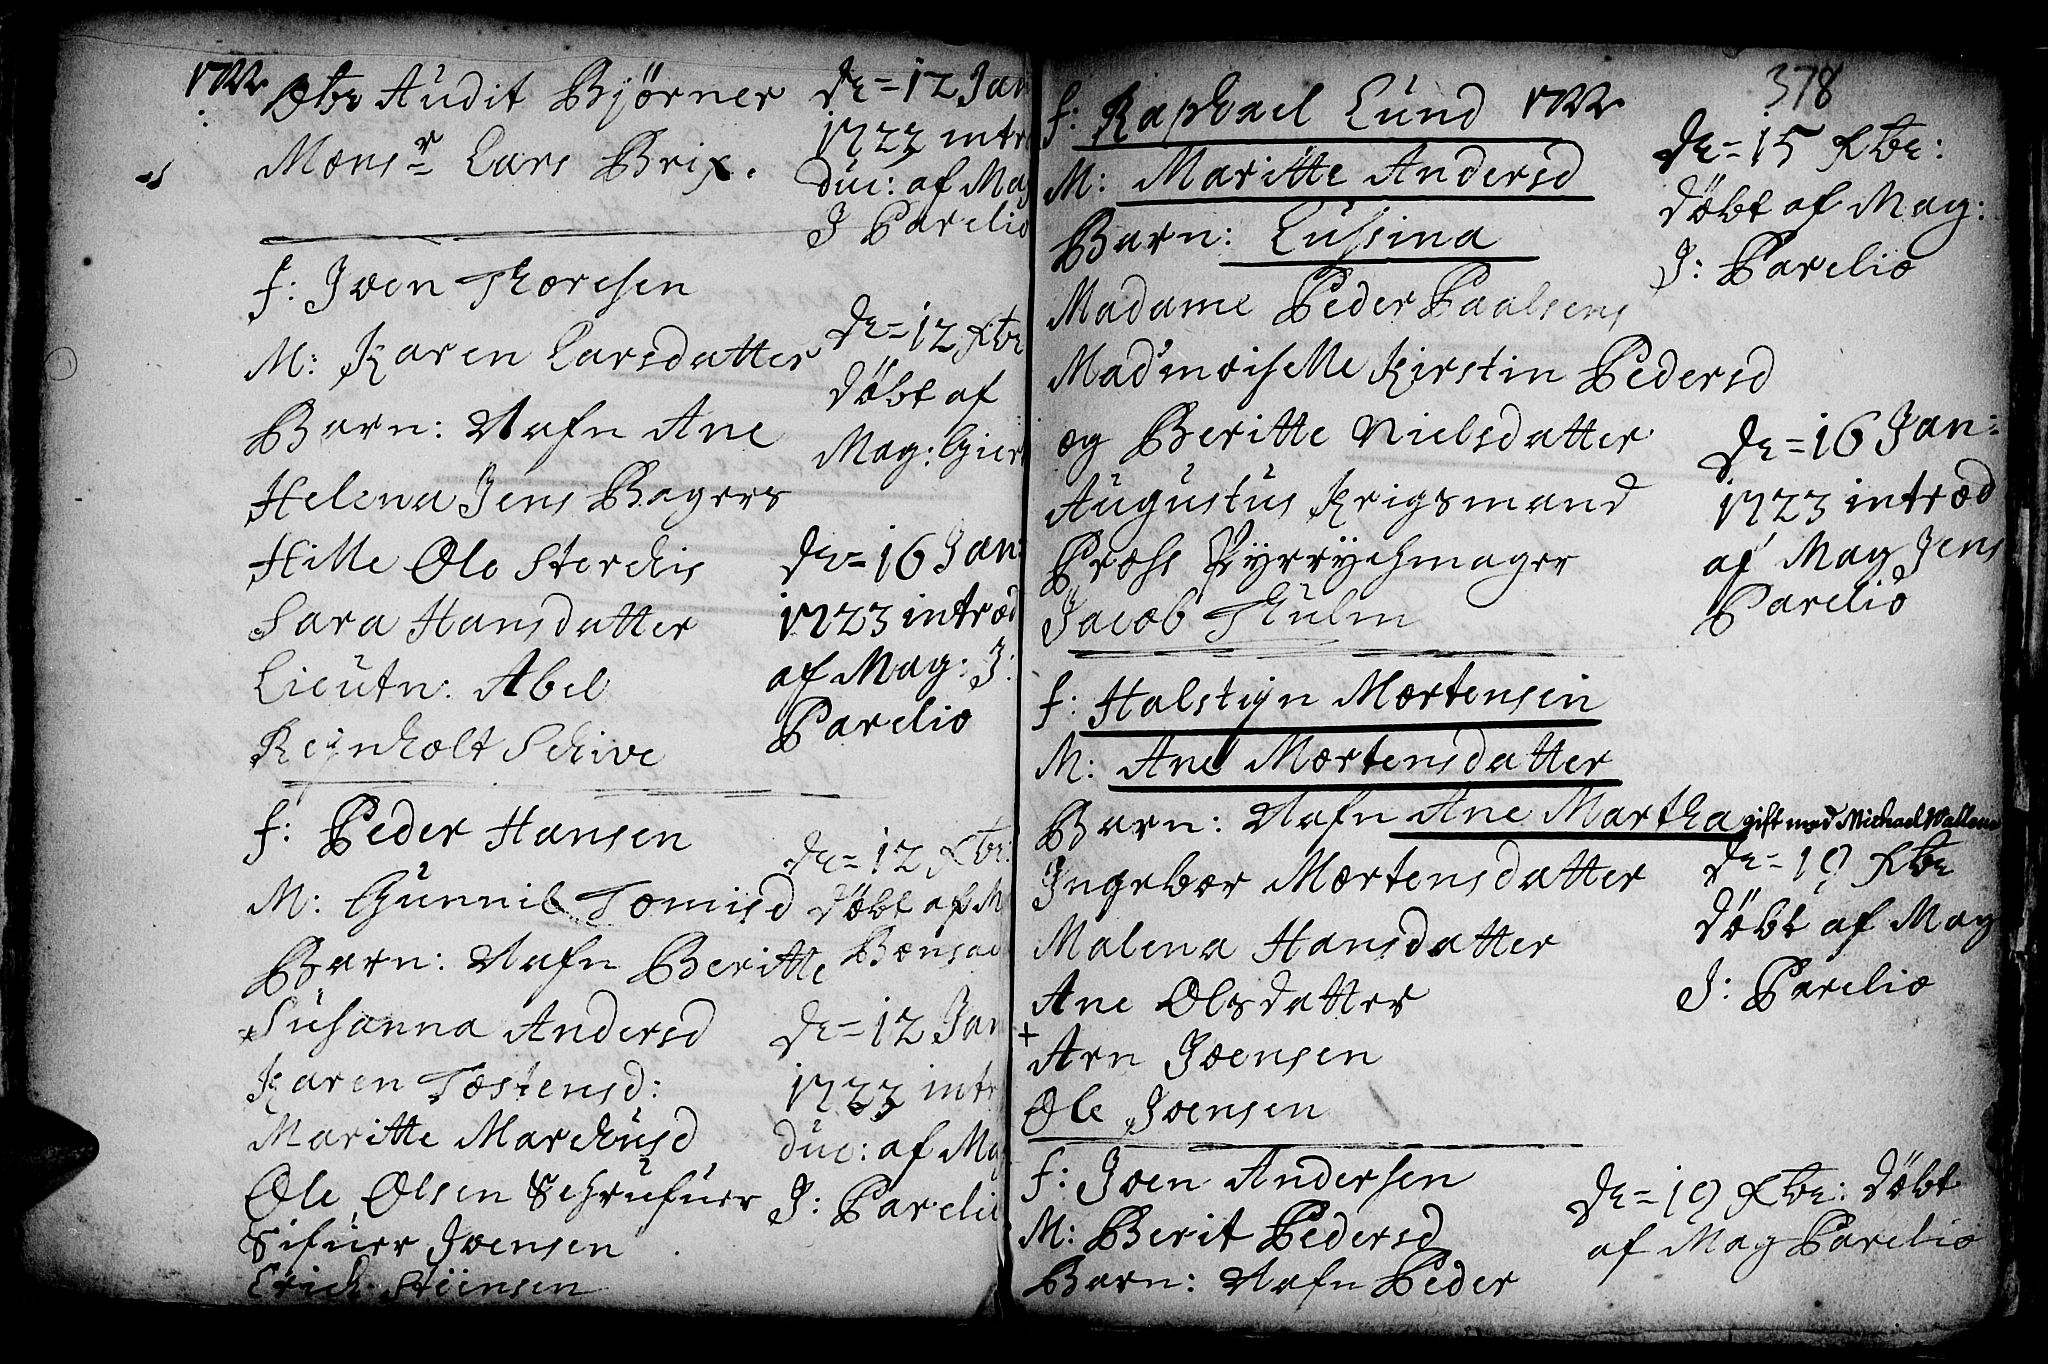 1722
Obr Audit Bjørner
Monsr Lars Brix.
D. = 12 Jan
1723 intro
duc: af Mag
J Parelio
f: Joen Thoresen
M: Karen Larsdatter
Barn: Nafn Ane
Helena Jens Bagers
Hille Ole Sterchis
Sara Hansdatter
Lieutn: Abel
Rejnholt Schive
D. = 12 Xbr
døbt af
Mag: Giert
D. = 16 Jan:
1723 introd
af Mag: J:
Parelio
f: Peder Hansen
M: Gunnil Tomisd
Barn: Nafn Beritte
Susanna Andersd
Karen Tostensd:
Maritte Marchusd
Ole Olsen Schrufuer
Sifuer Joensen
Erich Steensen
D. = 12 Xbr:
døbt af M
Bonsac
D. = 12 Jan
1723 intro
duc: af Mag
J: Parelio
378
f: Raphael Lund 1722
M: Maritte Andersd
Barn: Lussina
Madame Peder Paalsens
Mad'moiselle Kirstin Pedersd
og Beritte Nielsdatter
Augustus Krigsmand
Pross Pyrrychmager
Jacob Thulm
D. = 15 Xbr:
døbt af Mag:
J: Parelio
D. = 16 Jan:
1723 introd
af Mag Jens
Parelio
f: Halstign Mortensen
M: Ane Mortensdatter
Barn: Nafn Ane Martha gift med Michael Wallene
Ingebor Mortensdatter
Malena Hansdatter
Ane Olsdatter
+ Arn Joensen
Ole Joensen
D. = 19 Xbr
døbt af Mag
J: Parelio
f: Joen Andersen
M: Berit Pedersd
Barn: Nafn Peder
D. = 19 Xbr: døbt
af Mag Parelio